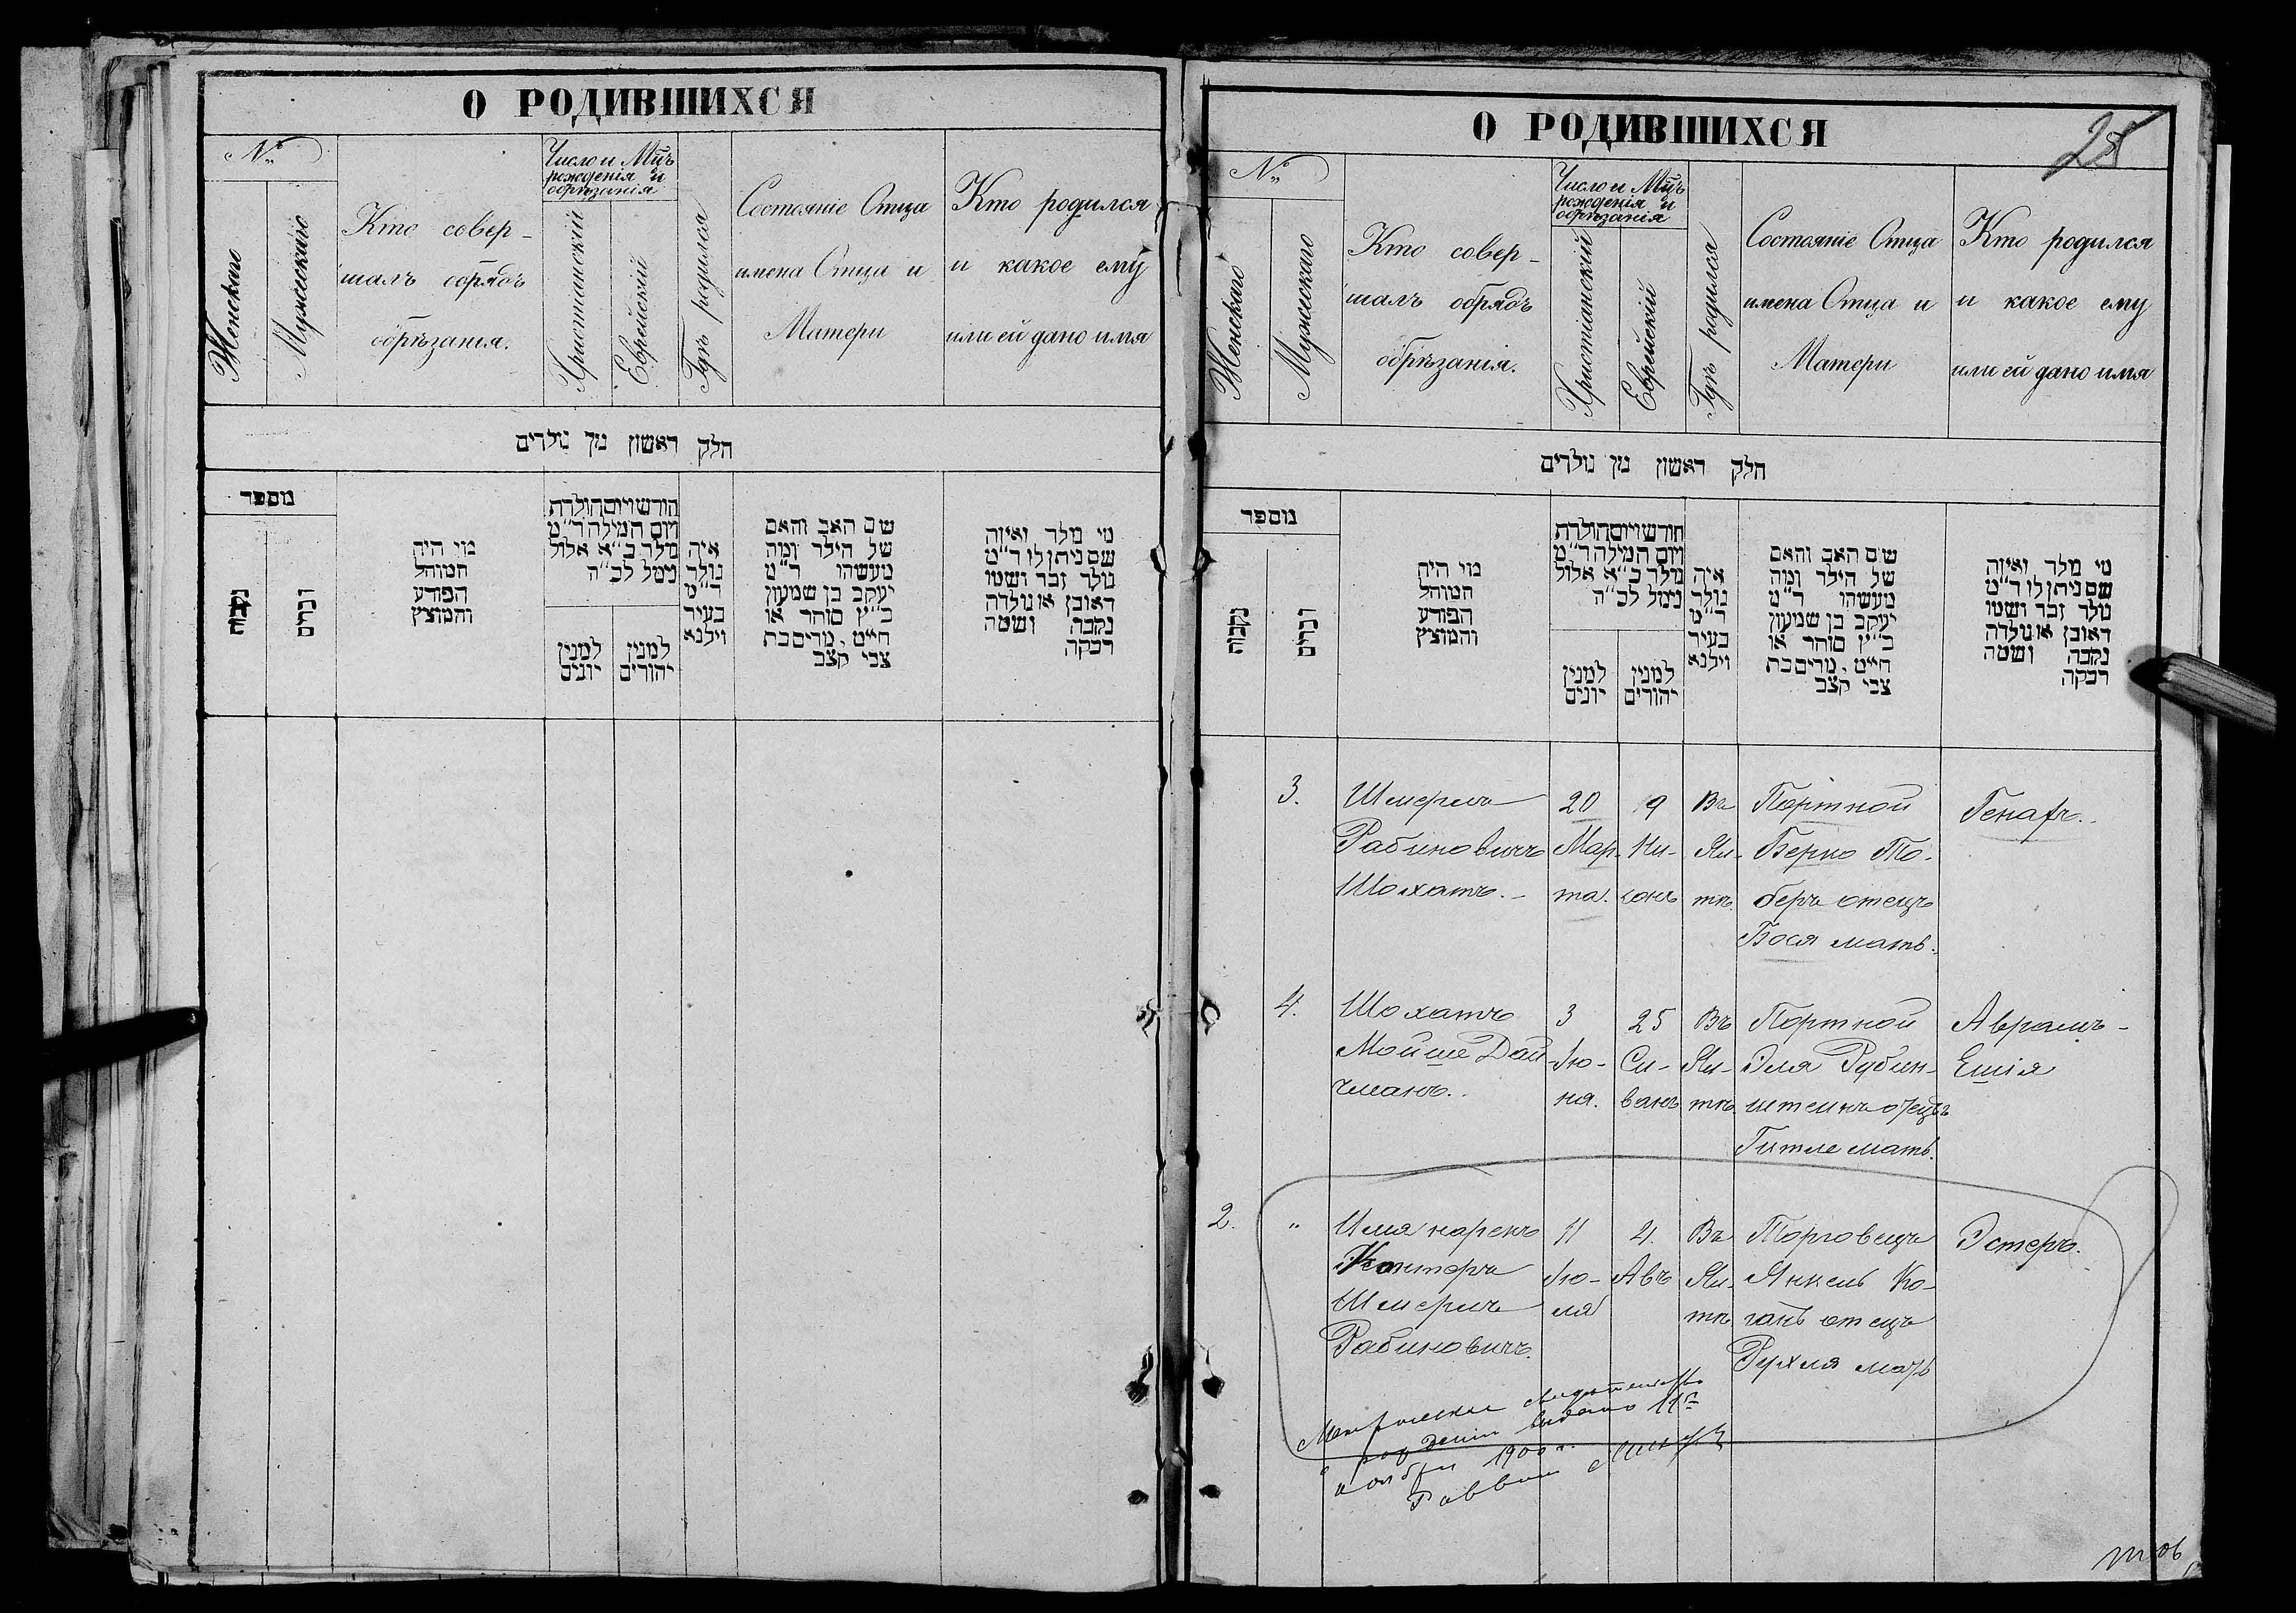 О РОДИВШИХСЯ
№
Женскаго
Мужескаго
Кто совер-
шалъ обрядъ
обрѣзанія.
Число и Мц̃ъ
рожденія и
обрѣзанія
Христіанскій
Еврейскій
Гдѣ родился
Состояніе Отца
имена Отца и
Матери
Кто родился
и какое ему
или ей дано имя
חלק ראשון מן נולדים
מספר
נקבות
זכרים
מי היה
המוהל
הפורע
והמוצץ
חודש ויום הולדת
ויום המילה ד"מ
נולד כ"א אלול
נימל לכ"ה
למנין
יונים
למנין
יהודים
איה
נולד
ד"מ
בעיר
וילנא
שם האב והאם
של הילד ומה
מעשהו ד"מ
יעקב בן שמעון
כ"ץ סוחר או
חייט, מרים בת
צבי קצב
מי נולד ואיזה
שם ניתן לו ד"מ
נולד זכר ושמו
ראובן או נולדה
נקבה ושמה
רבקה
О РОДИВШИХСЯ
25
№
Женскаго
Мужескаго
Кто совер-
шалъ обрядъ
обрѣзанія.
Число и Мц̃ъ
рожденія и
обрѣзанія
Христіанскій
Еврейскій
Гдѣ родился
Состояніе Отца
имена Отца и
Матери
Кто родился
и какое ему
или ей дано имя
חלק ראשון מן נולדים
מספר
נקבות
זכרים
מי היה
המוהל
הפורע
והמוצץ
חודש ויום הולדת
ויום המילה ד"מ
נולד כ"א אלול
נימל לכ"ה
למנין
יונים
למנין
יהודים
איה
נולד
ד"מ
בעיר
וילנא
שם האב והאם
של הילד ומה
מעשהו ד"מ
יעקב בן שמעון
כ"ץ סוחר או
חייט, מרים בת
צבי קצב
מי נולד ואיזה
שם ניתן לו ד"מ
נולד זכר ושמו
ראובן או נולדה
נקבה ושמה
רבקה
3. Шмериль 20 9 Въ Портной
Рабиновичъ Мар- Ни- Яи- Берко То-
Шохатъ.- та. сонъ тѣ. беръ отецъ
Бося мать.
4. Шохатъ 3 25 Въ Портной Аврамъ-
Мойше Дай- Ію- Си- Яи- Эля Рубин- Ешія
чманъ. ня. ванъ тѣ. штейнъ отецъ
Гитле мать.
2. " Имя нарекъ 11 4. Въ Торговецъ Эстеръ.
Канторъ Ію- Авъ Яи- Янкель Ко-
Шмериль ля тѣ ганъ отецъ
Рабиновичъ. Рухля мать
Метрическое свидѣтельство
о рожденіи выдано 11го
ноября 1900 г.
Раввинъ